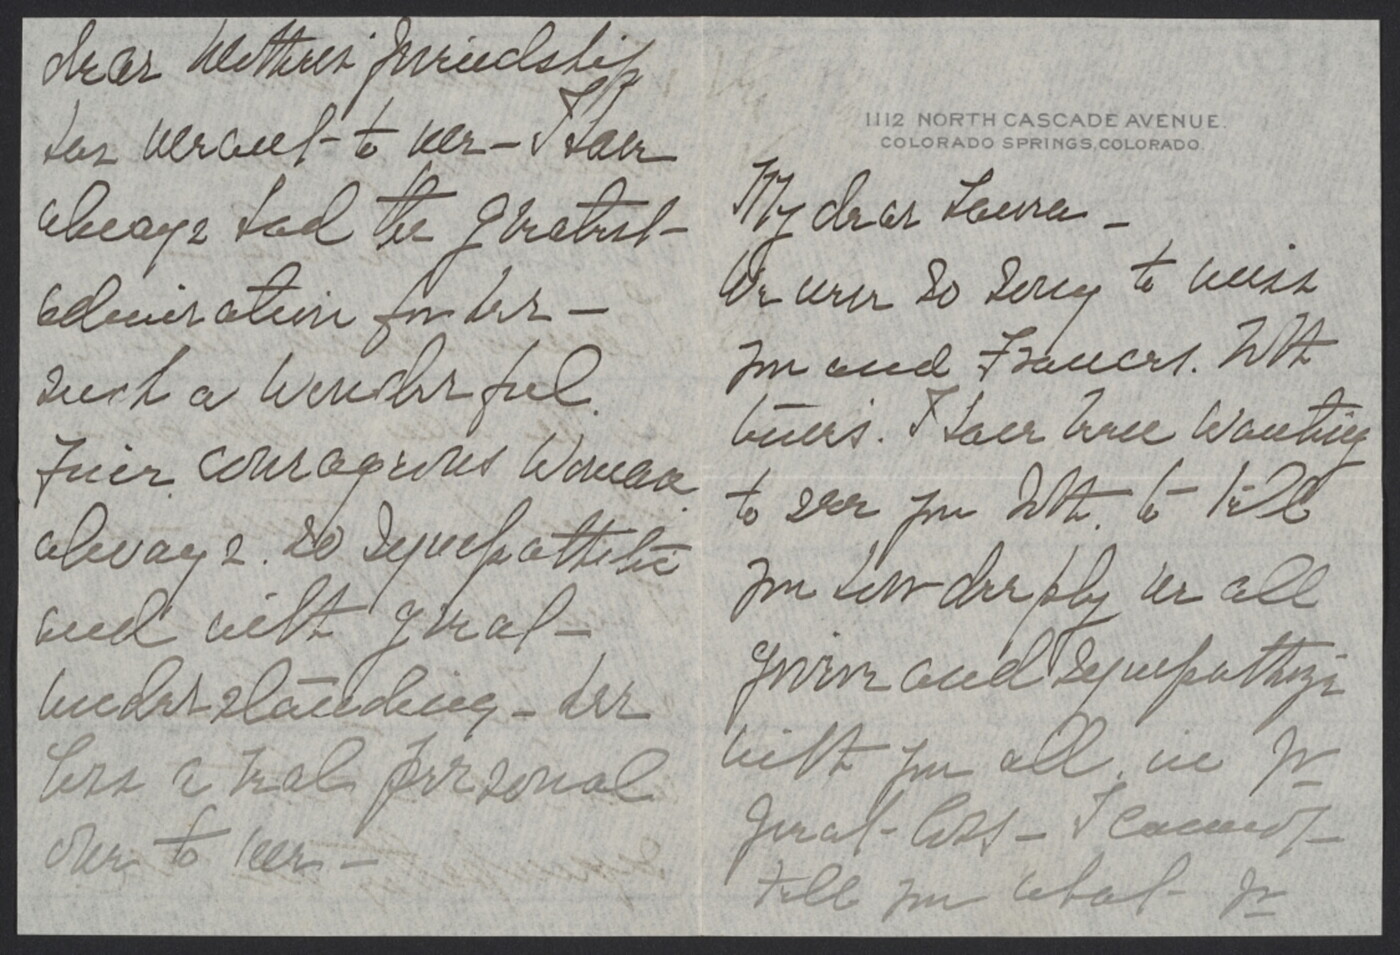 1112 NORTH CASCADE AVENUE.
COLORADO SPRINGS, COLORADO.
My dear Laura –
We were so sorry to miss
you and Frances. Both
times. I have been wanting
to see you Both. to tell
you how deeply we all
grieve and sympathize
with you all, in yr
great loss – I cannot
tell you what yr
dear Mothers' friendship
has meant to me – I have
always had the greatest
admiration for her –
such a wonderful.
Fine. courageous woman
always. so sympathetic
and with great
understanding – her
loss a real personal
one to me. –